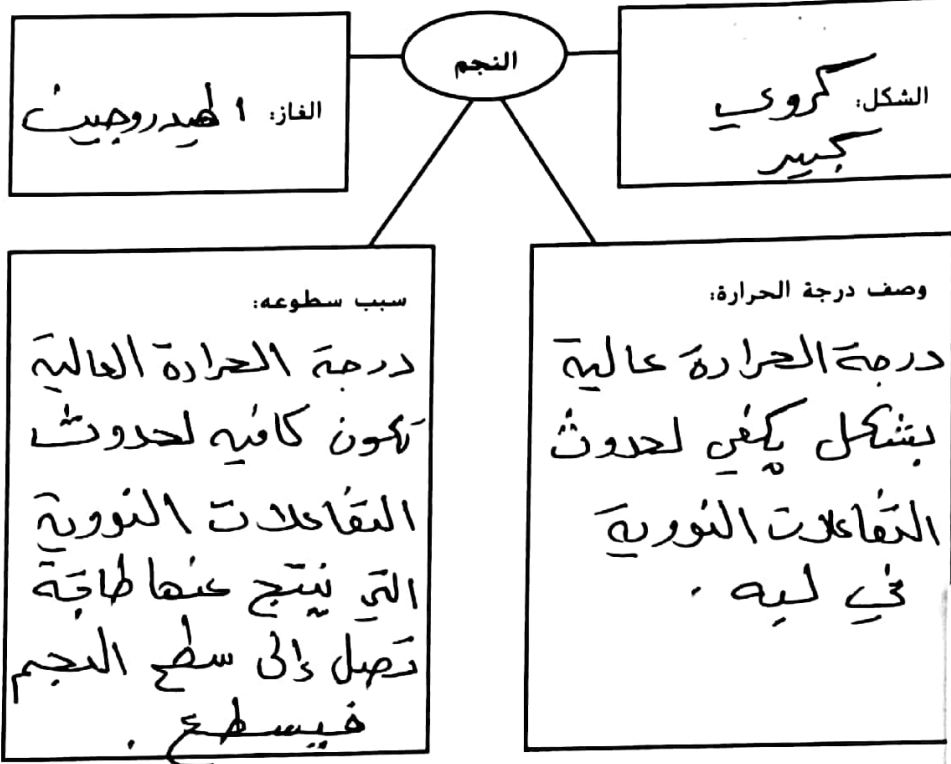 النجم
الشكل: كروي
كبير
الغاز: الهيدروجين
وصف درجة الحرارة:
درجة الحرارة عالية
بشكل يكفي لحدوث
التفاعلات النووية
في لبه .
سبب سطوعه:
درجة الحرارة العالية
تكون كافيه لحدوث
التفاعلات النووية
التي ينتج عنها طاقة
تصل إلى سطح النجم
فيسطع .